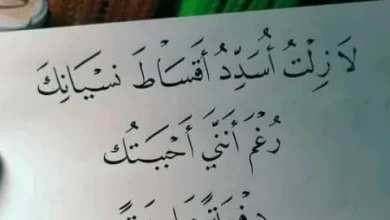 لَا زِلْتُ أُسَدِّدُ أَقْسَاطَ نِسْيَانِكَ
رُغْمَ أَنَّنِّي أَحْبَبْتُك